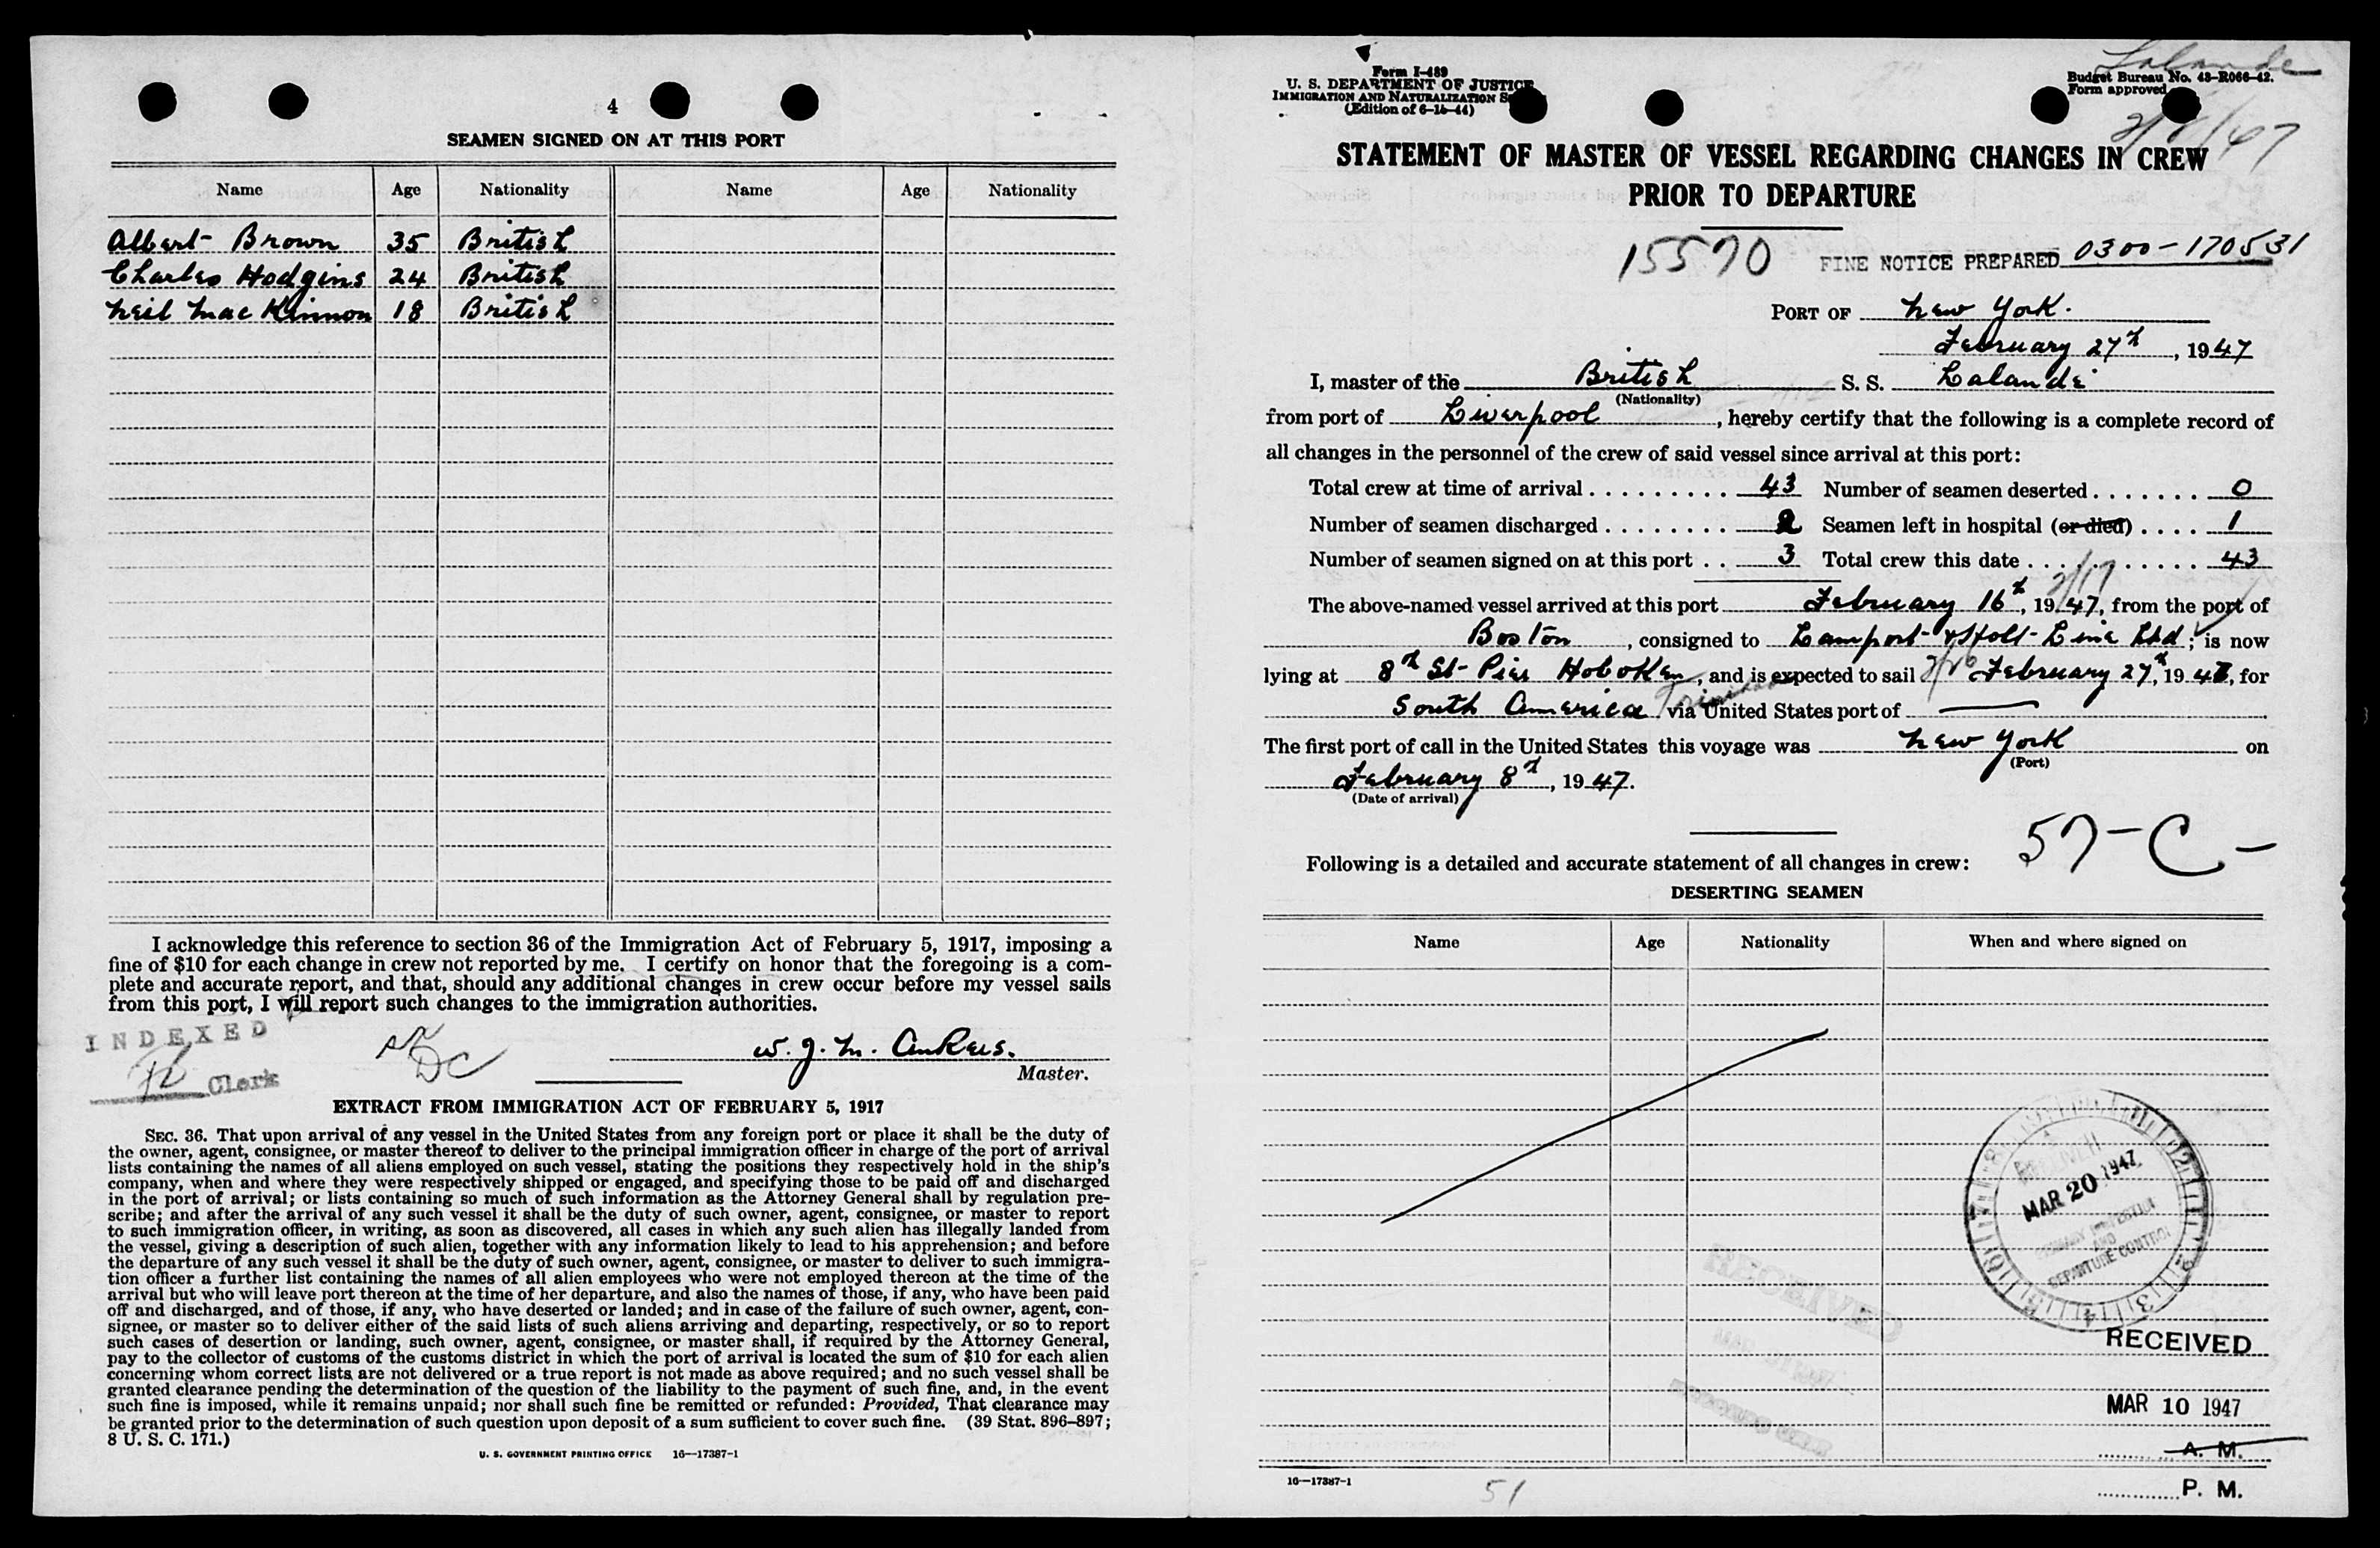 4
SEAMEN SIGNED ON AT THIS PORT
Name Age Nationality Name Age Nationality
Albert Brown 35 British
Charles Hodgins 24 British
Neil MacKinnon 18 British
I acknowledge this reference to section 36 of the Immigration Act of February 5, 1917, imposing a
fine of $10 for each change in crew not reported by me. I certify on honor that the foregoing is a com-
plete and accurate report, and that, should any additional changes in crew occur before my vessel sails
from this port, I will report such changes to the immigration authorities.
INDEXED
Clerk
W. J. M. Ankers.
Master.
EXTRACT FROM IMMIGRATION ACT OF FEBRUARY 5, 1917
SEC. 36. That upon arrival of any vessel in the United States from any foreign port or place it shall be the duty of
the owner, agent, consignee, or master thereof to deliver to the principal immigration officer in charge of the port of arrival
lists containing the names of all aliens employed on such vessel, stating the positions they respectively hold in the ship's
company, when and where they were respectively shipped or engaged, and specifying those to be paid off and discharged
in the port of arrival; or lists containing so much of such information as the Attorney General shall by regulation pre-
scribe; and after the arrival of any such vessel it shall be the duty of such owner, agent, consignee, or master to report
to such immigration officer, in writing, as soon as discovered, all cases in which any such alien has illegally landed from
the vessel, giving a description of such alien, together with any information likely to lead to his apprehension; and before
the departure of any such vessel it shall be the duty of such owner, agent, consignee, or master to deliver to such immigra-
tion officer a further list containing the names of all alien employees who were not employed thereon at the time of the
arrival but who will leave port thereon at the time of her departure, and also the names of those, if any, who have been paid
off and discharged, and of those, if any, who have deserted or landed; and in case of the failure of such owner, agent, con-
signee, or master so to deliver either of the said lists of such aliens arriving and departing, respectively, or so to report
such cases of desertion or landing, such owner, agent, consignee, or master shall, if required by the Attorney General,
pay to the collector of customs of the customs district in which the port of arrival is located the sum of $10 for each alien
concerning whom correct lists are not delivered or a true report is not made as above required; and no such vessel shall be
granted clearance pending the determination of the question of the liability to the payment of such fine, and, in the event
such fine is imposed, while it remains unpaid; nor shall such fine be remitted or refunded: Provided, That clearance may
be granted prior to the determination of such question upon deposit of a sum sufficient to cover such fine. (39 Stat. 896-897;
8 U. S. C. 171.)
U. S. GOVERNMENT PRINTING OFFICE 16—17387-1
Form I-489
U. S. DEPARTMENT OF JUSTICE
IMMIGRATION AND NATURALIZATION
(Edition of 6-15-44)
Lalande
Budget Bureau No. 43-R066-42.
Form approved
2/8/47
STATEMENT OF MASTER OF VESSEL REGARDING CHANGES IN CREW
PRIOR TO DEPARTURE
15570 FINE NOTICE PREPARED 0300-170531
PORT OF New York.
February 27th, 1947
I, master of the British S. S. Lalande
(Nationality)
from port of Liverpool, hereby certify that the following is a complete record of
all changes in the personnel of the crew of said vessel since arrival at this port:
Total crew at time of arrival 43 Number of seamen deserted 0
Number of seamen discharged 2 Seamen left in hospital (or died) 1
Number of seamen signed on at this port 3 Total crew this date 43
2/17
The above-named vessel arrived at this port February 16th, 1947, from the port of
Boston, consigned to Lamport & Holt Line Ltd; is now
lying at 8th St Pier Hoboken, and is expected to sail 2/28 February 27th, 1947, for
South America Trinidad via United States port of —
The first port of call in the United States this voyage was New York on
(Port)
February 8th, 1947.
(Date of arrival)
57-C-
Following is a detailed and accurate statement of all changes in crew:
DESERTING SEAMEN
Name Age Nationality When and where signed on
MAR 20 1947
AND
DEPARTURE CONTROL
RECEIVED
RECEIVED
MAR 10 1947
A. M.
P. M.
16—17387-1
51